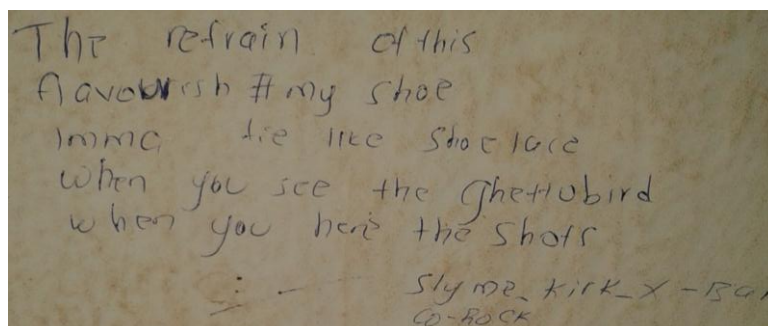 The refrain of this
flavourish # my shoe
imma tie like shoelace
when you see the Ghettobird
when you here the shots
Slyme_Kirk_X-Ba
CO-ROCK